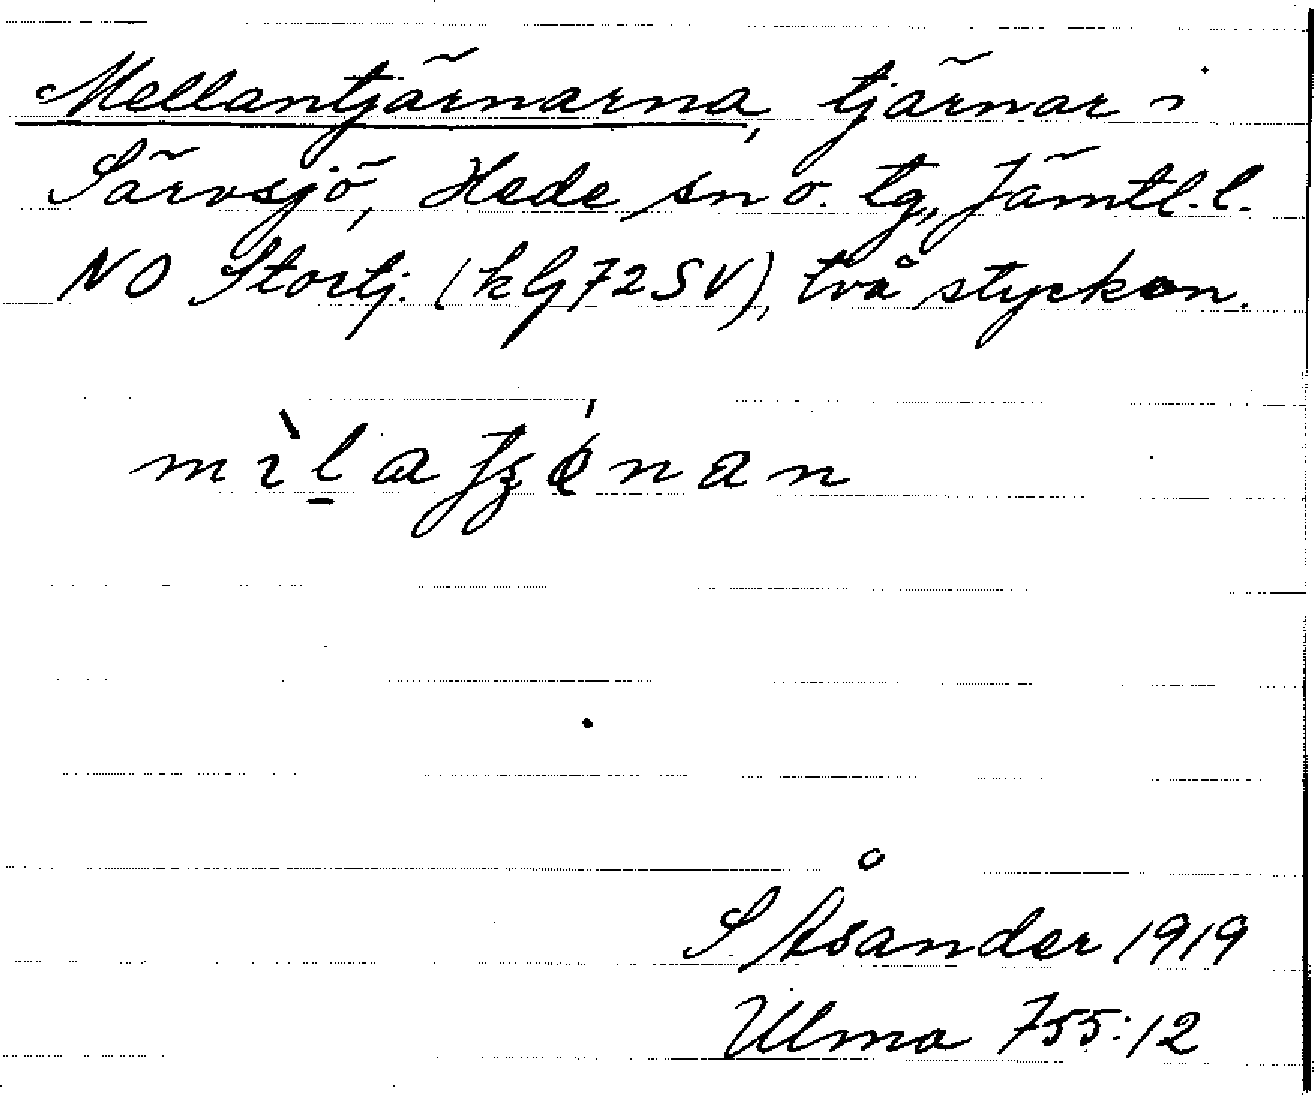 Mellantjärnarna, tjärnar i
Särvsjö, Hede sn o. tg, Jämtl. l.
NO Stortj. (kbl 72 SV), två stycken.
S Åsander 1919
Ulma 755:12